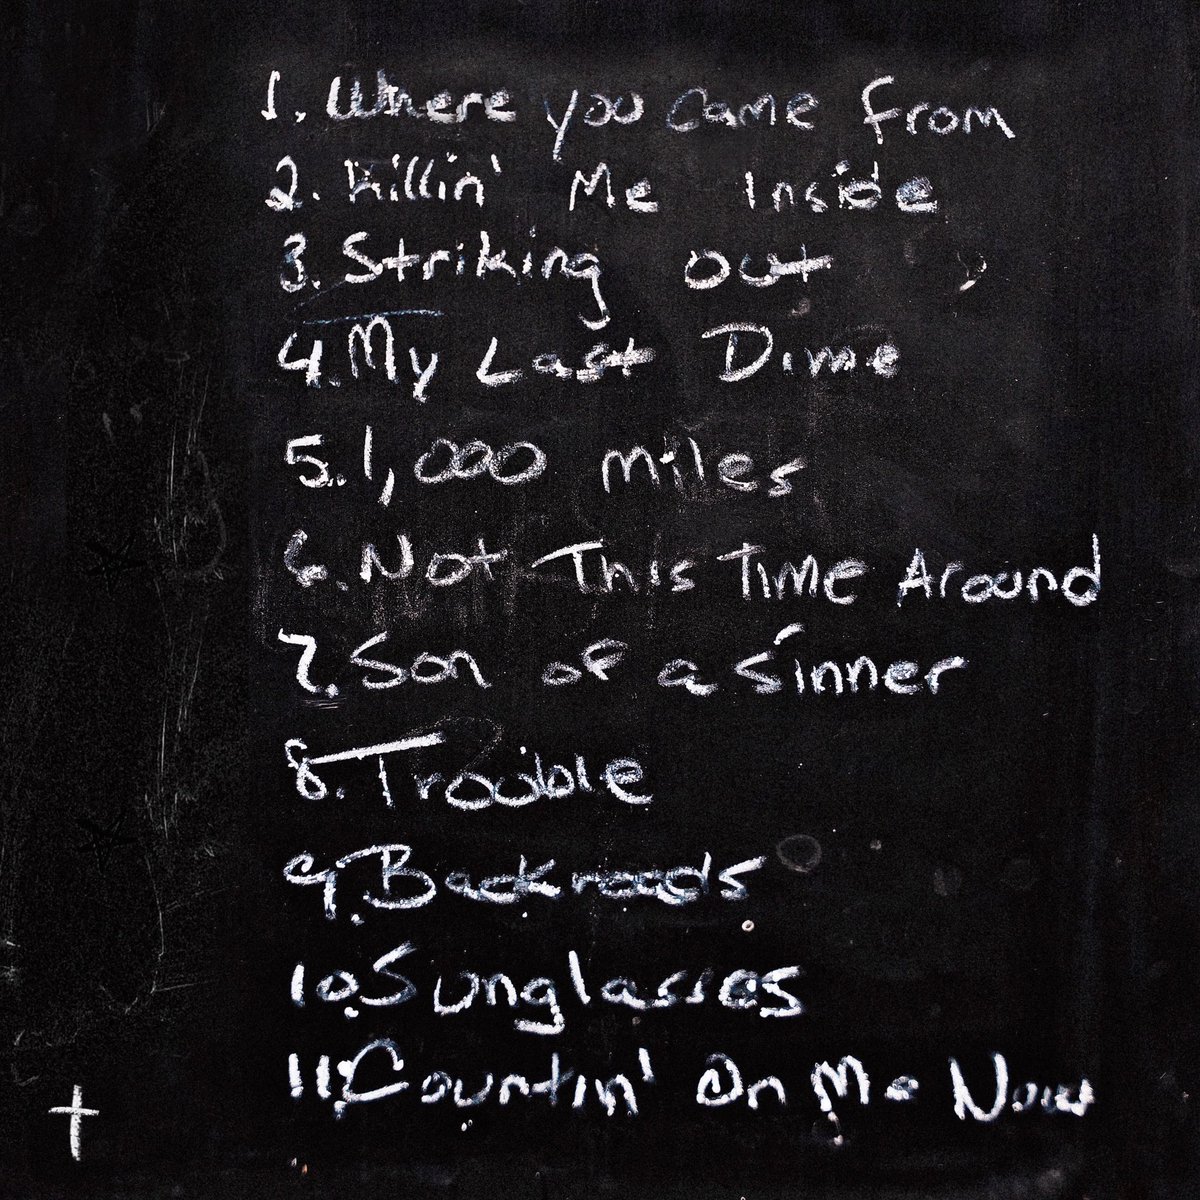 1. Where you came from
2. Killin' Me Inside
3. Striking out
4. My Last Dime
5. 1,000 miles
6. Not This Time Around
7. Son of a Sinner
8. Trouble
9. Backroads
10. Sunglasses
11. Countin' On Me Now